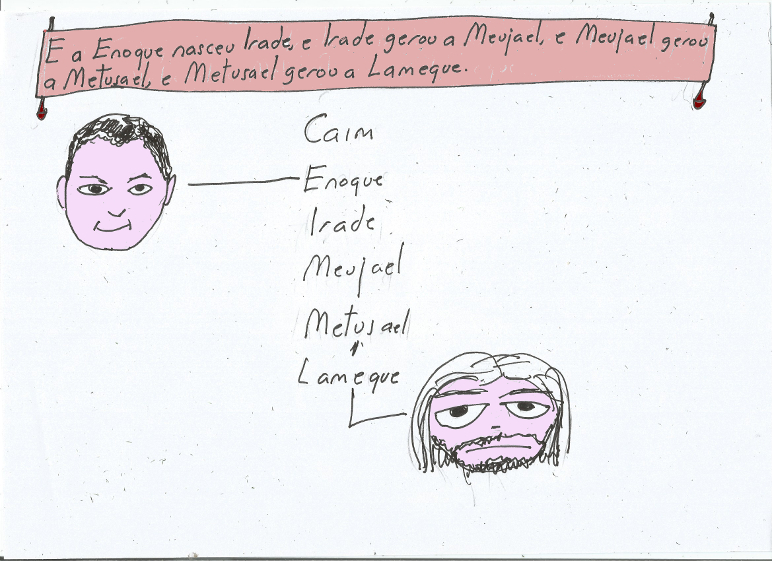 E a Enoque nasceu Irade, e Irade gerou a Meujael, e Meujael gerou
a Metusael, e Metusael gerou a Lameque.
Caim
Enoque
Irade
Meujael
Metusael
Lameque